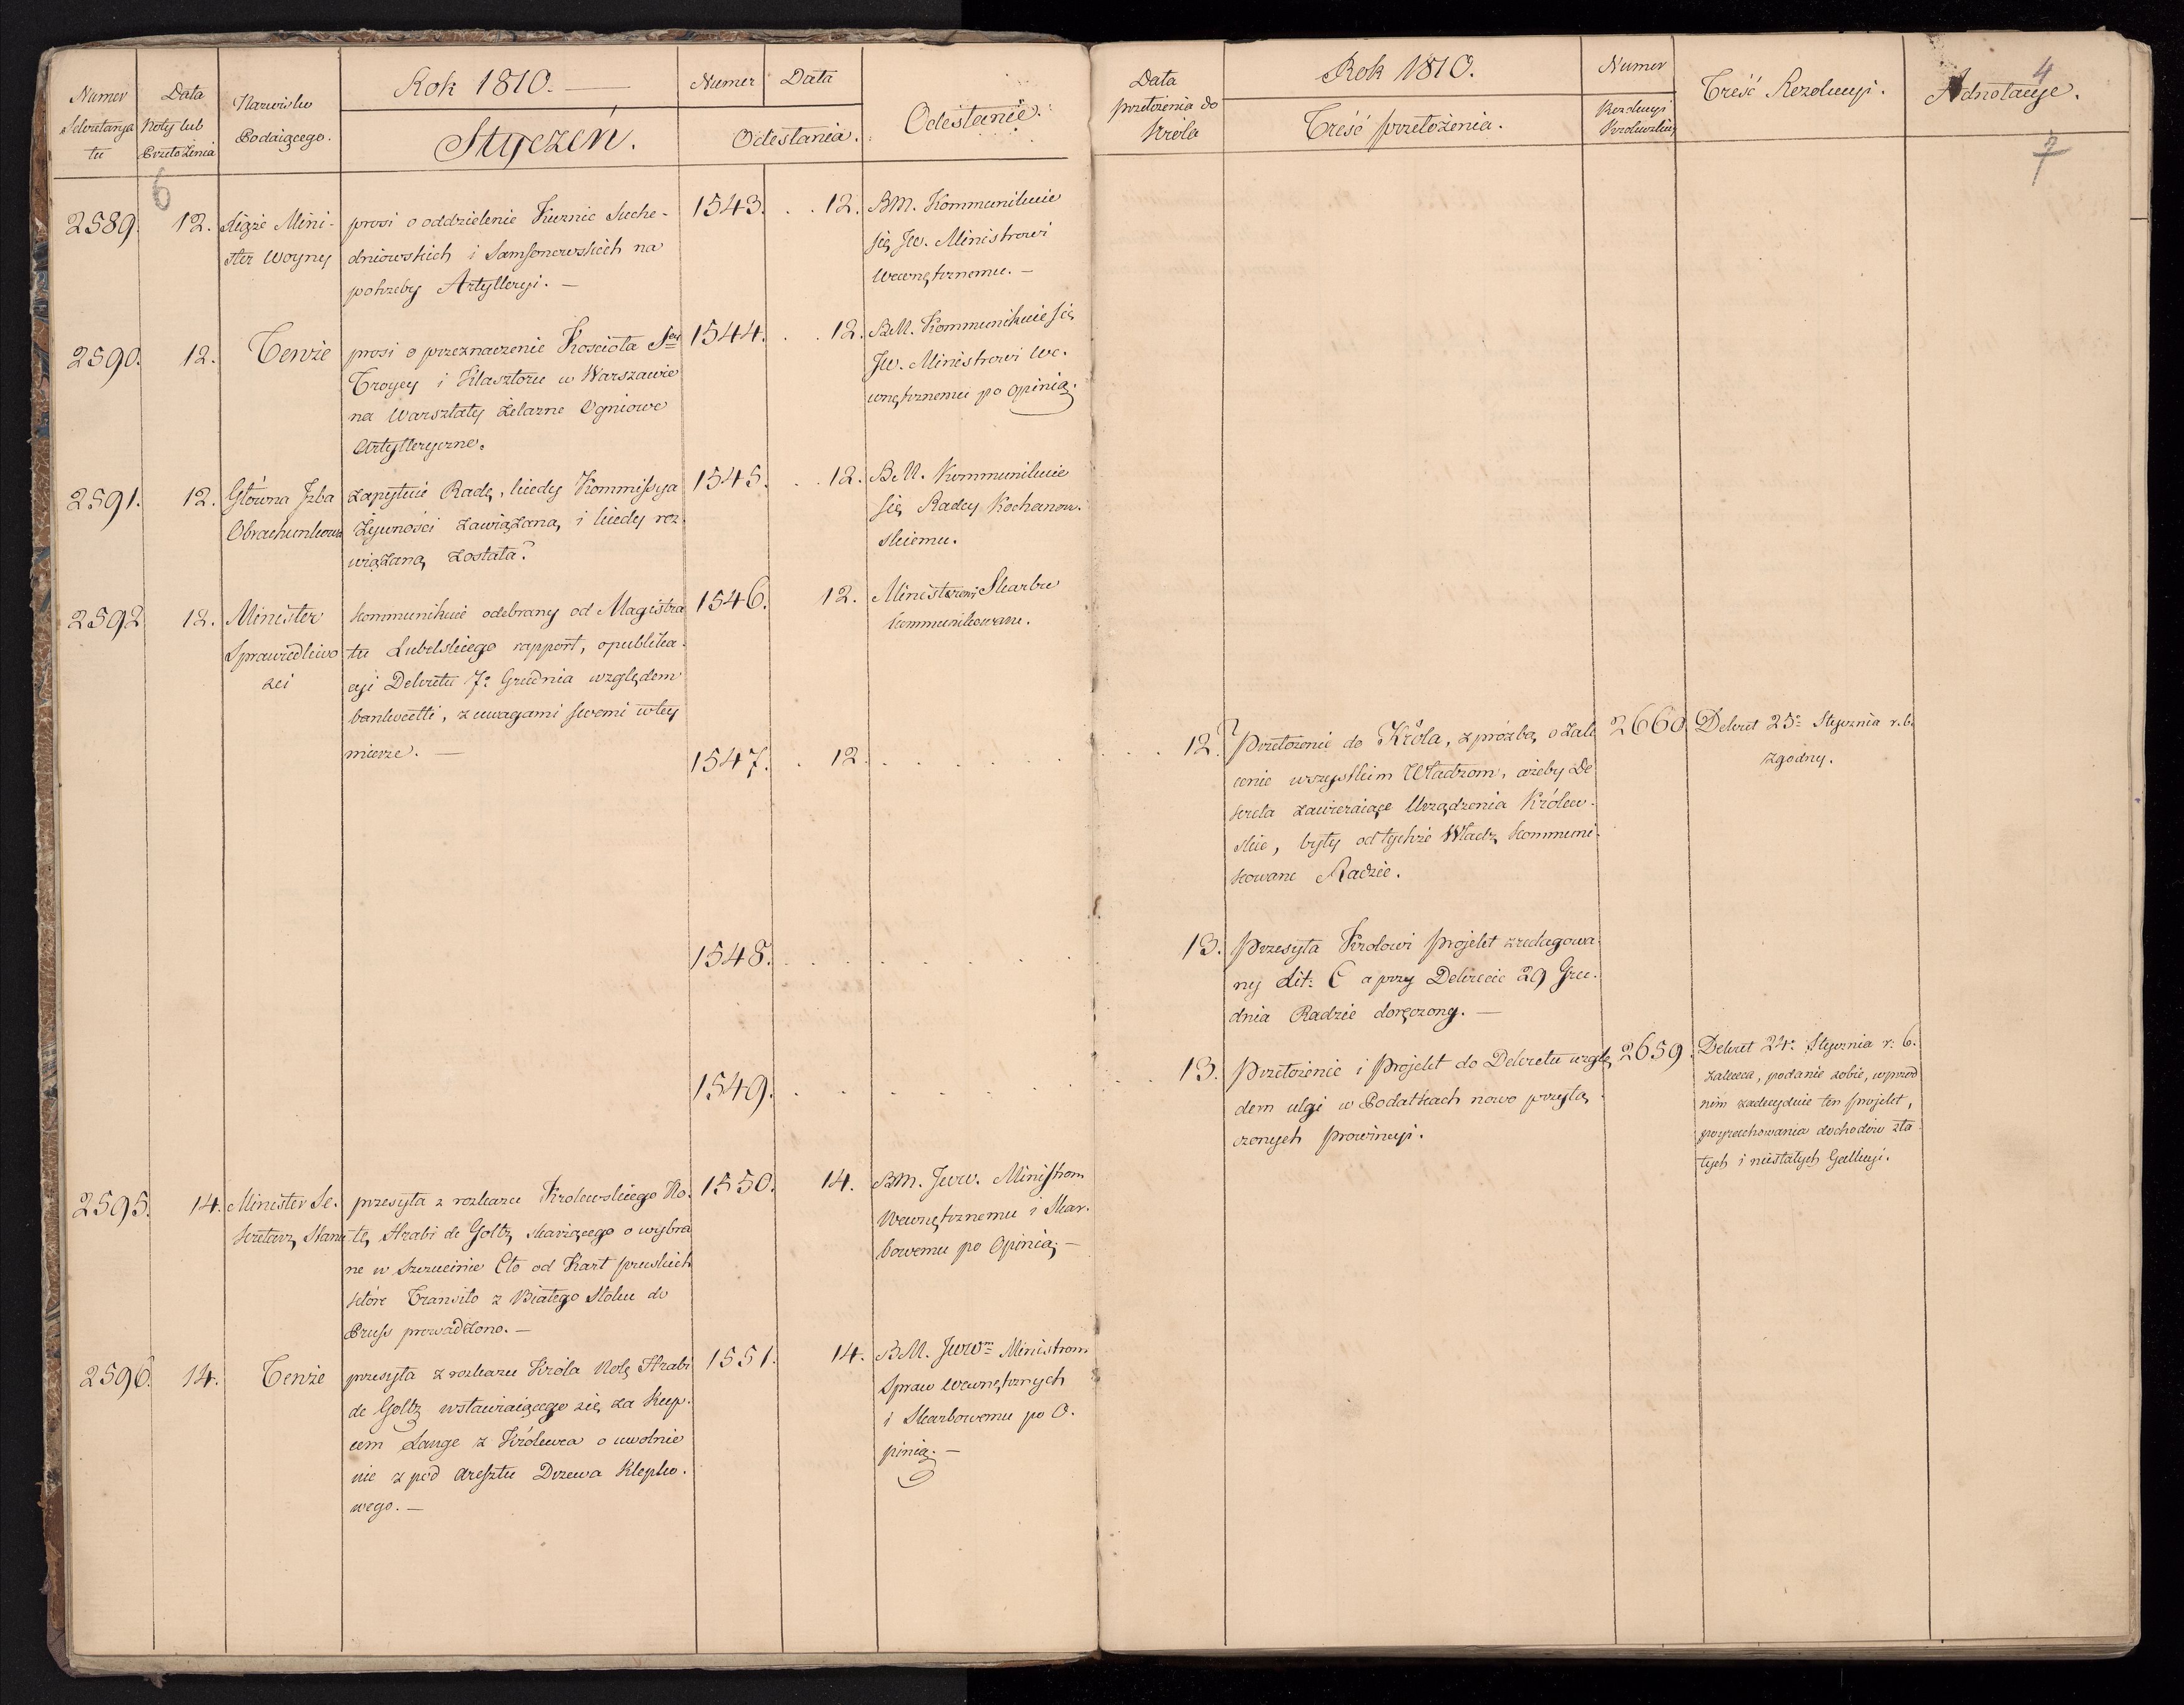 Numer
Sekretarya
tu
Data
Noty lub
Przełożenia
Nazwisko
Podaiącego.
Rok 1810. —
Styczeń.
Numer
Data
Odesłania.
Odesłanie.
6
2589.
12.
Xiąże Mini-
ster Woyny
prosi o oddzielenie Kuznic Suche-
dniowskich i Samsonowskich na
potrzeby Artylleryi. —
1543.
. . 12.
BM. Kommunikuie
się Jw. Ministrowi
Wewnętrznemu. —
2590.
12.
Tenże
prosi o przeznaczenie Kościoła Stey
Troycy i Klasztoru w Warszawie
na Warsztaty żelazne Ogniowe
Artylleryczne.
1544.
. . 12.
BM. Kommunikuie się
Jw. Ministrowi We-
wnętrznemu po Opinią.
2591.
12.
Główna Izba
Obrachunkowa
zapytuie Radę, kiedy Kommissya
Żywności zawiązaną, i kiedy roz-
wiązaną została?
1545.
. . 12.
BM. Kommunikuie
się Radcy Kochanow-
skiemu.
2592
12.
Minister
Sprawiedliwo
ści
kommunikuie odebrany od Magistra
tu Lubelskiego rapport, o publika-
cyi Dekretu 7o Grudnia względem
bankocetli, z uwagami swemi w tey
mierze. —
1546.
12.
Ministrowi Skarbu
kommunikowane.
1547.
. 12.
. . . . . .
1548.
. . . . . . . .
1549.
. . . . . .
2595.
14.
Minister Se-
kretarz Stanu
przesyła z rozkazu Krolewskiego No-
tę Hrabi de Goltz skarżącego o wybra
ne w Szczucinie Cło od Kart pruskich
które Transito z Białego Stoku do
Pruss prowadzono. —
1550.
14.
BM. Jww. Ministrom
Wewnętrznemu i Skar-
bowemu po Opinią; —
2596.
14.
Tenże
przesyła z rozkazu Króla Notę Hrabi
de Goltz wstawiaiącego się za Kup-
cem Lange z Królewca o uwolnie
nie z pod aresztu Drzewa Klepko-
wego. —
1551.
14.
BM. Jwwm Ministrom
Spraw Wewnętrznych
i Skarbowemu po O-
pinią. —
Data
przełożenia do
Króla
Rok 1810.
Treść przełożenia.
Numer
Rezolucyi
Krolewskiey
Treść Rezolucyi.
4
Adnotacye.
7
. . . 12.
Przełożenie do Króla, z prożbą o zale
cenie wszystkim Władzom, ażeby De
kreta zawieraiące Urządzenia Królew-
skie, były od tychże Władz kommuni-
kowane Radzie.
2660.
Dekret 25o Stycznia r. b.
zgodny.
13.
Przesyła Krolowi projekt zredagowa-
ny Lit: C a przy Dekrecie 29 Gru-
dnia Radzie doręczony. —
. . . 13.
Przełożenie i Projekt do Dekretu wzglę
dem ulgi w Podatkach nowo przyłą
czonych prowincyi.
2659.
Dekret 24o Stycznia r: b.
zaleca, podanie sobie, wprzód
nim zadecyduie ten projekt,
porachowania dochodów sta
łych i niestałych Gallicyi.